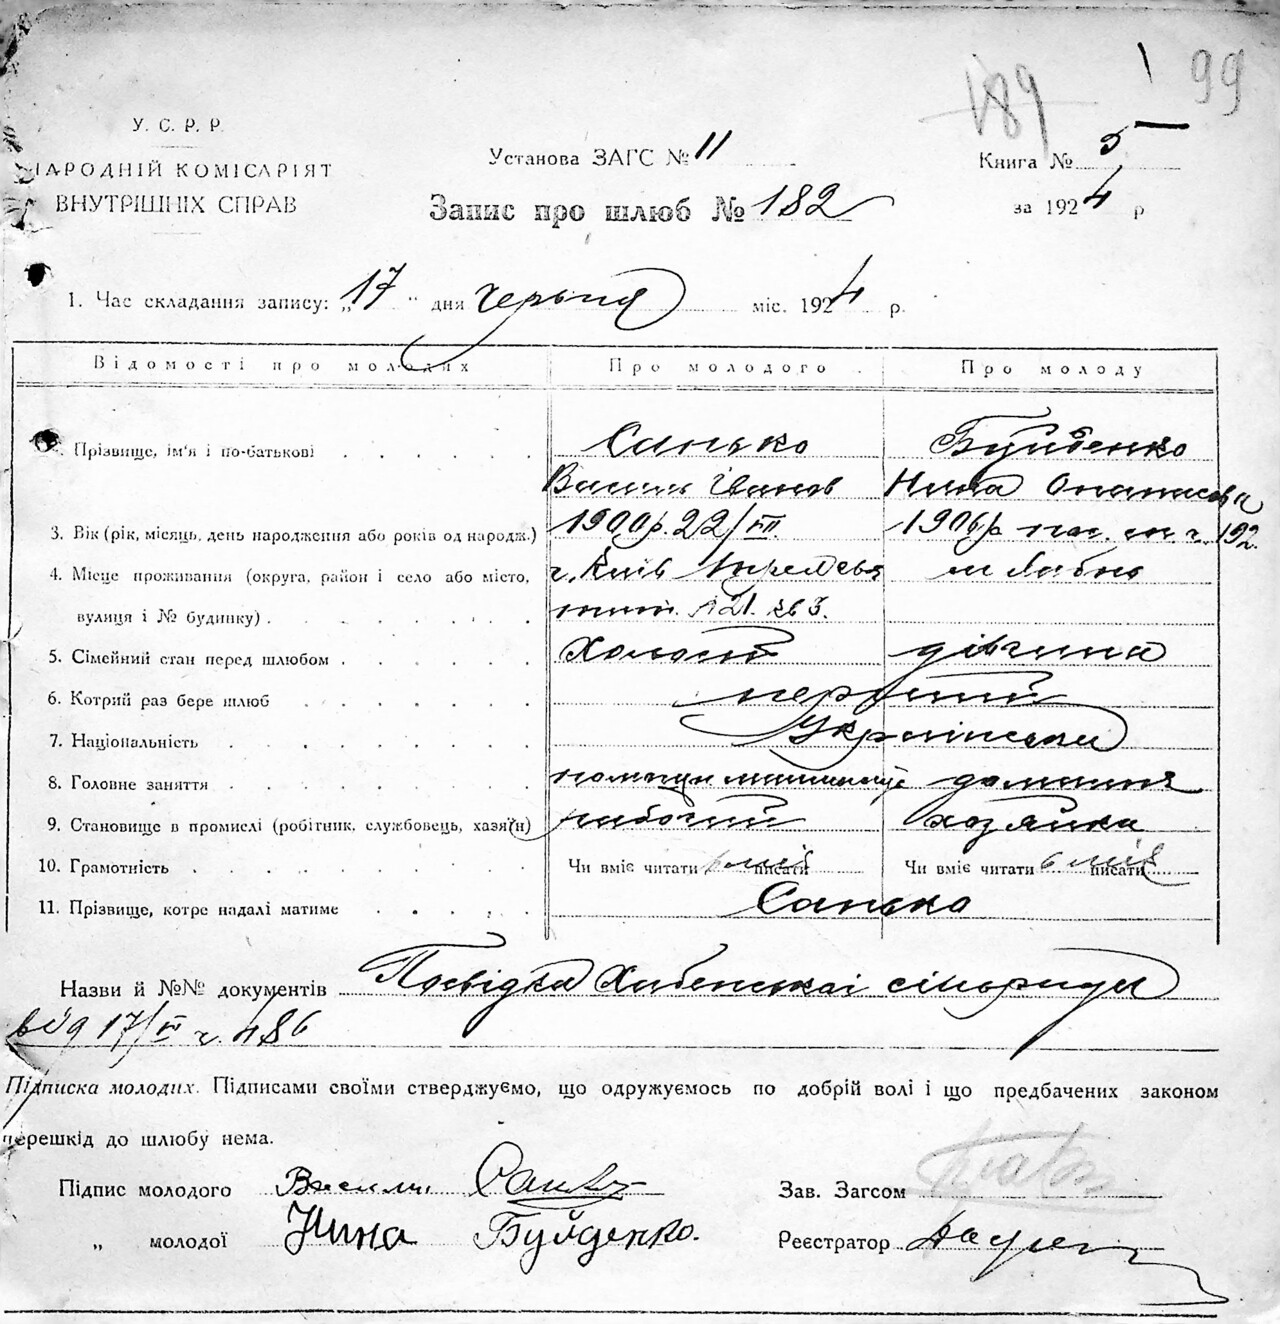 189 99
У. С. Р. Р.
НАРОДНІЙ КОМІСАРІЯТ
ВНУТРІШНІХ СПРАВ
Установа ЗАГС № 11
Книга № 5
Запис про шлюб № 182
за 1924 р
1. Час складання запису: „17" дня червня міс. 1924 р.
Відомості про молодих Про молодого Про молоду
2. Прізвище, ім'я і по-батькові Санько Буйденко
Василь Іванов Нина Опанасова
3. Вік (рік, місяць, день народження або років од народж.) 1900 р. 22/VII. 1906 р.
4. Місце проживания (округа, район і село або місто, м. Київ
вулиця і № будинку) 21. кв 3.
5. Сімейний стан перед шлюбом Холост дівчина
6. Котрий раз бере шлюб первший
7. Національність Українськи
8. Головне заняття домашня
9. Становище в промислі (робітник, службовець, хазяїн) рабочий хозяйка
10. Грамотність Чи вміє читати вміє писати Чи вміє читати вміє писати
11. Прізвище, котре надалі матиме Санько
Назви й №№ документів Посвідка
від 17/VI ч. 486
Підписка молодих. Підписами своїми стверджуємо, що одружуємось по добрій волі і що предбачених законом
перешкід до шлюбу нема.
Підпис молодого Василь Санько
Зав. Загсом
„ молодої Нина Буйденко.
Реєстратор